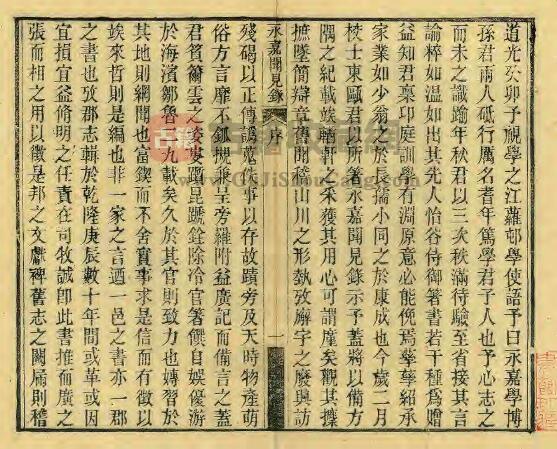 道光癸卯予視學之江蘿邨學使語予曰永嘉學博
孫君兩人砥行厲名耆年篤學君子人也予心志之
而未之識踰年秋君以三次秩滿待驗至省接其言
論粹如溫如出其先人怡谷侍御箸書若干種為贈
益知君稟卬庭訓學有淵原意必能俛焉孳孳紹承
家業如少翁之於長孺小同之於康成也今歲二月
校士東甌君以所箸永嘉聞見錄示予蓋將以備方
隅之紀載竢輶軒之采獲其用心可謂廑矣觀其摭
墜簡辯章舊聞稽山川之形埶攷廨宇之廢興訪
永嘉聞見錄 序 一
殘碣以正傳譌蒐佚事以存故蹟旁及天時物產萌
俗方言靡不
旁羅附益廣記而備言之蓋
君
除冷官箸饌自娛優游
於海濱鄒魯
九載矣久於其官則致力也嫥習於
其地則網聞也富鍥而不舍實事求是信而有徵以
竢來哲則是編也非一家之言迺一邑之書亦一郡
之書也攷郡志輯於乾隆庚辰數十年間或革或因
宜損宜益脩明之任責在司牧誠卽此書推而廣之
張而相之用以徵是邦之文獻裨舊志之闕扇則稽